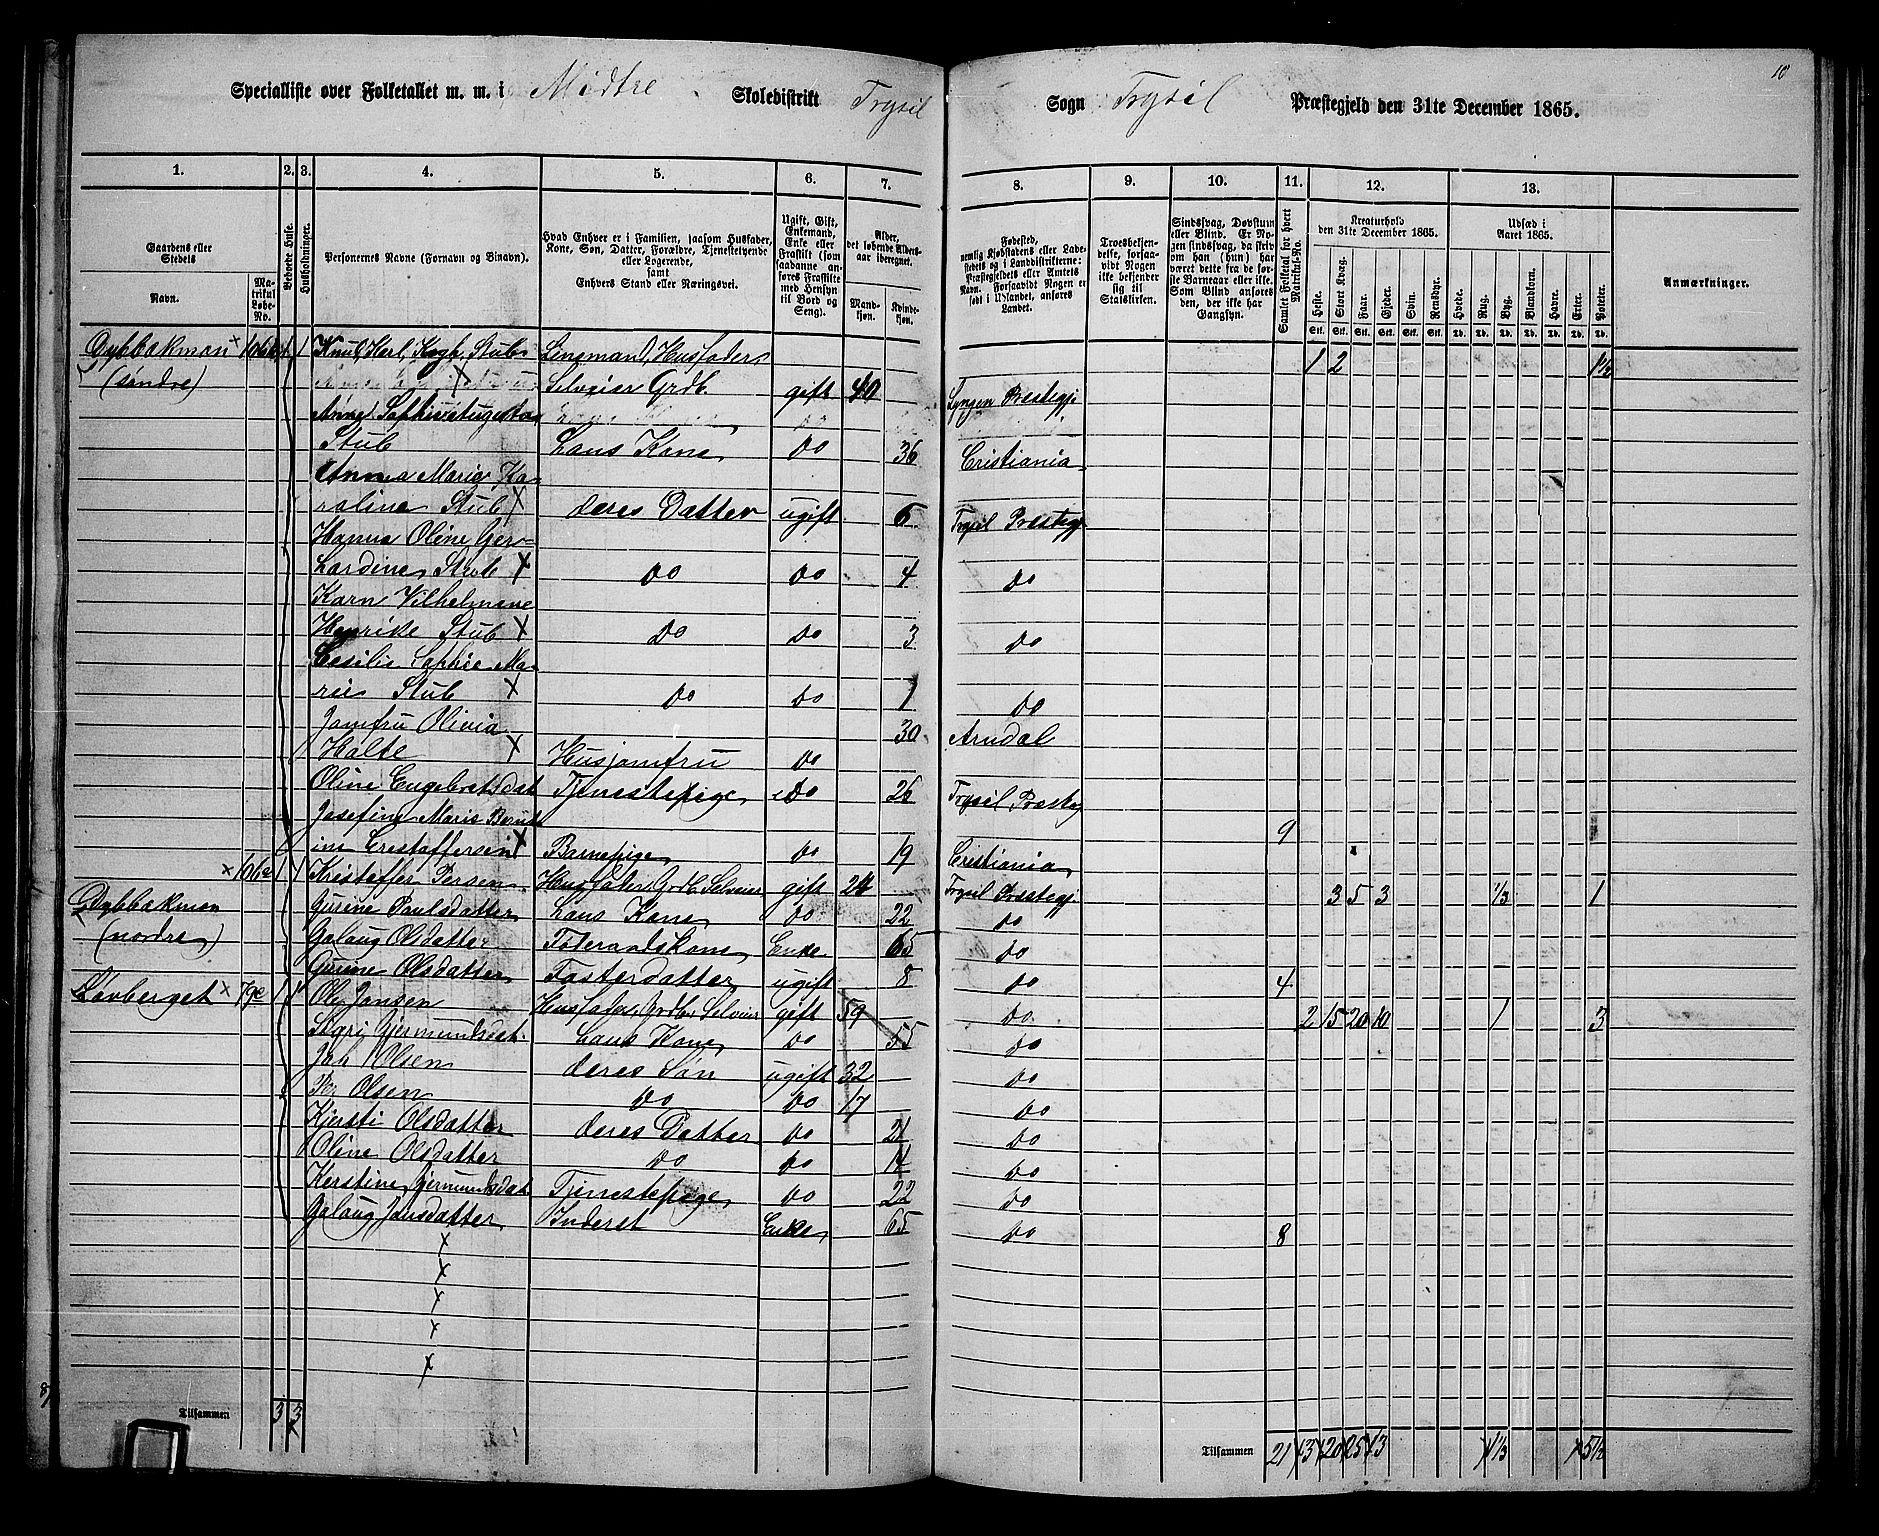 10
Specialliste over Folketallet m. m. i Midtre Skoledistrikt Trysil Sogn Trysil Præstegjeld den 31te December 1865.
1. 2. 3. 4. 5. 6. 7. 8. 9. 10. 11. 12. 13.
Gaardens eller Stedets
Navn.
Matrikul Løbe-No.
Beboede Huse.
Husholdninger.
Personernes Navne (Fornavn og Binavn).
Hvad Enhver er i Familien, saasom Husfader, Kone, Søn, Datter, Forældre, Tjenestetyende eller Logerende,
samt
Enhvers Stand eller Næringsvei.
Ugift, Gift, Enkemand, Enke eller Fraskilt (som saadanne anføres Fraskilte med Hensyn til Bord og Seng).
Alder, det løbende Aldersaar iberegnet.
Mandkjøn.
Kvindekjøn.
Fødested, nemlig Kjøbstadens eller Ladestedets og i Landdistrikterne: Præstegjeldets eller Amtets Navn. Forsaavidt Nogen er født i Udlandet, anføres Landet.
Troesbekjendelse, forsaavidt Nogen ikke bekjender sig til Statskirken.
Sindssvag, Døvstum eller Blind. Er Nogen sindssvag, da skriv om han (hun) har været dette fra de første Barneaar eller ikke. Som Blind ansøres den, der ikke har Gangsyn.
Samlet Folketal for hvert Matrikul-No.
Kreaturhold
den 31te December 1865.
Heste. Stort Kvæg. Faar. Gjeder. Svin. Rensdyr.
Udsæd i
Aaret 1865.
Hvede. Rug. Byg. Blandkorn. Havre. Erter. Poteter.
Anmærkninger.
Dybbakmon × 106b 1 1 Knut Harl. Kogh. Stub Lensmand, Husfader 1 2 1½
(søndre) Selveier Grdb. gift 40 Lyngen Præstegj
Stub Hans Kone do 36 Cristiania
Anna Maria Ka-
roline Stub × deres Datter ugift 6 Trysil Præstegj
Hanna Oline Ger-
hardine Stub × do do 4 do
Karn Vilhelmine
Henrike Stub × do do 3 do
Cesilie Sophie Ma-
rie Stub × do do 1 do
Jomfru Olivia 30 Arndal
Holte × Husjomfru do
Oline Engebretsdat Tjenestepige do 26 Trysil Præstegj
Josefine Marie Bernt 9
ine Crestoffersen × Barnepige do 19 Cristiania
× 106a 1 1 Kristoffer Persen Husfader, Grdb. Selveier gift 24 Trysil Præstegj. 3 5 3 ⅓ 1
Dybbakmon Gurine Paulsdatter Hans Kone do 22 do
(nordre) Galaug Olsdatter Foderaadskone Enke 65 do
Gurine Olsdatter Fosterdatter ugift 8 do 4
Løvberget × 79e 1 1 Ole Jonsen Husfader, Grdb. Selveier gift 59 do 2 15 20 10 1 3
Sigri Gjermundsdat. Hans Kone do 55 do
Joh Olsen deres Søn ugift 32 do
Pr. Olsen do do 17 do
Kjersti Olsdatter deres Datter do 21 do
Oline Olsdatter do do 14 do
Kerstine Gjermundsdat Tjenestepige do 22 do
Galaug Jonsdatter Inderst Enke 65 do 8
×
×
×
×
×
Tilsammen 3 3
Tilsammen 21 3 20 25 13 1⅓ 5½